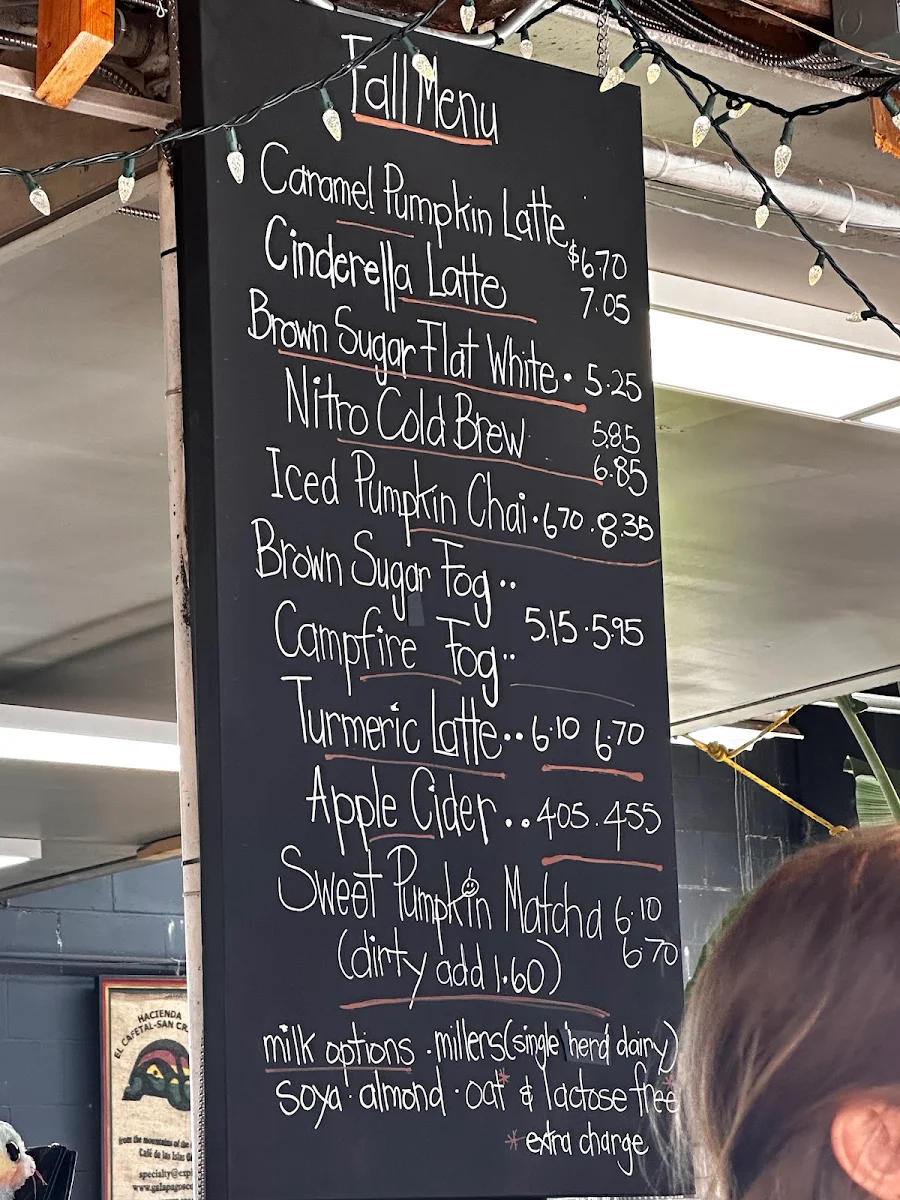 Fall Menu
Caramel Pumpkin Latte
$6.70
Cinderella Latte 7.05
Brown Sugar Flat White • 5.25
Nitro Cold Brew 5.85
6.85
Iced Pumpkin Chai • 6.70 • 8.35
Brown Sugar Fog ••
5.15 • 5.95
Campfire Fog ••
Turmeric Latte •• 6.10 6.70
Apple Cider •• 405 . 455
Sweet Pumpkin Matcha 6.10
6.70
(dirty add 1.60)
milk options • millers (single herd dairy)
soya • almond • oat* & lactose free
*extra charge
HACIENDA
EL CAFETAL-SAN CR
from the mountains of the
Café de las Islas
specialty@expl